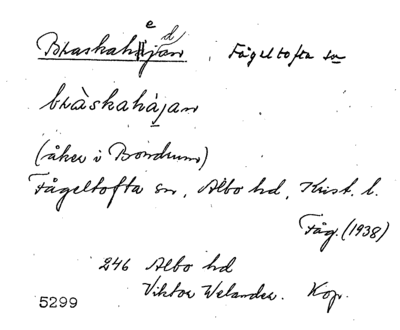 Braskahejdan, Fågeltofta sn
bràskahàjan
(åker i Bondrum)
Fågeltofta sn, Albo hd, Krist. l.
Fåg. (1938)
246 Albo hd
Viktor Welander. Kop.
5299